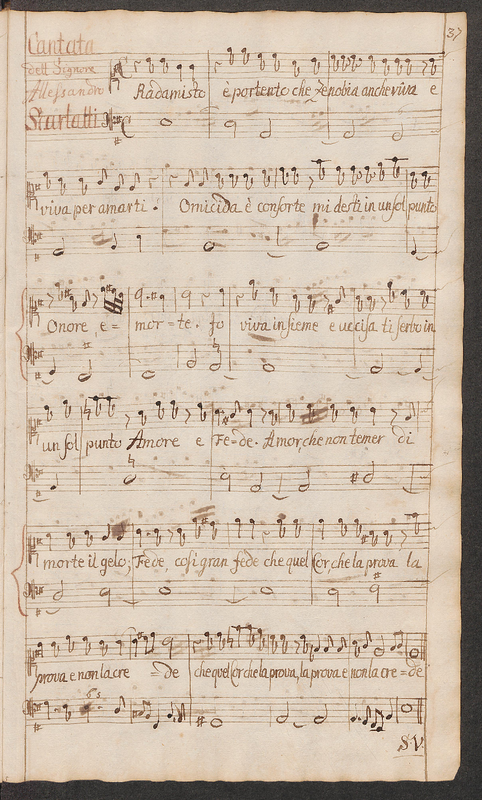 37
Cantata
dell Signore
Alessandro
Scarlatti
Radamisto è portento che Zenobia anche viva e
viva per amarti. Omicida è consorte mi desti in un sol punto
Onore, e = mor = te. Io viva insieme e uccisa ti serbo in
un sol punto Amore e Fe = de. Amor, che non temer di
morte il gelo; Fede, così gran fede che quel Cor che la prova la
prova e non la cre = de che quel Cor che la prova, la prova e non la cre = de
6 5
S.V.